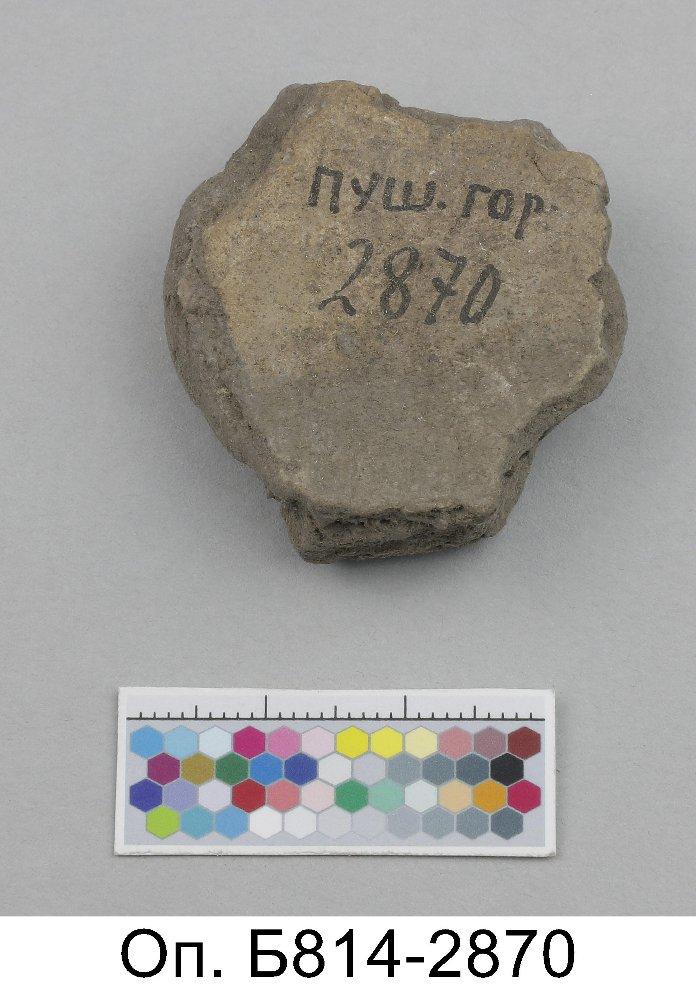 ПУШ. ГОР.
2870
Оп. Б814-2870